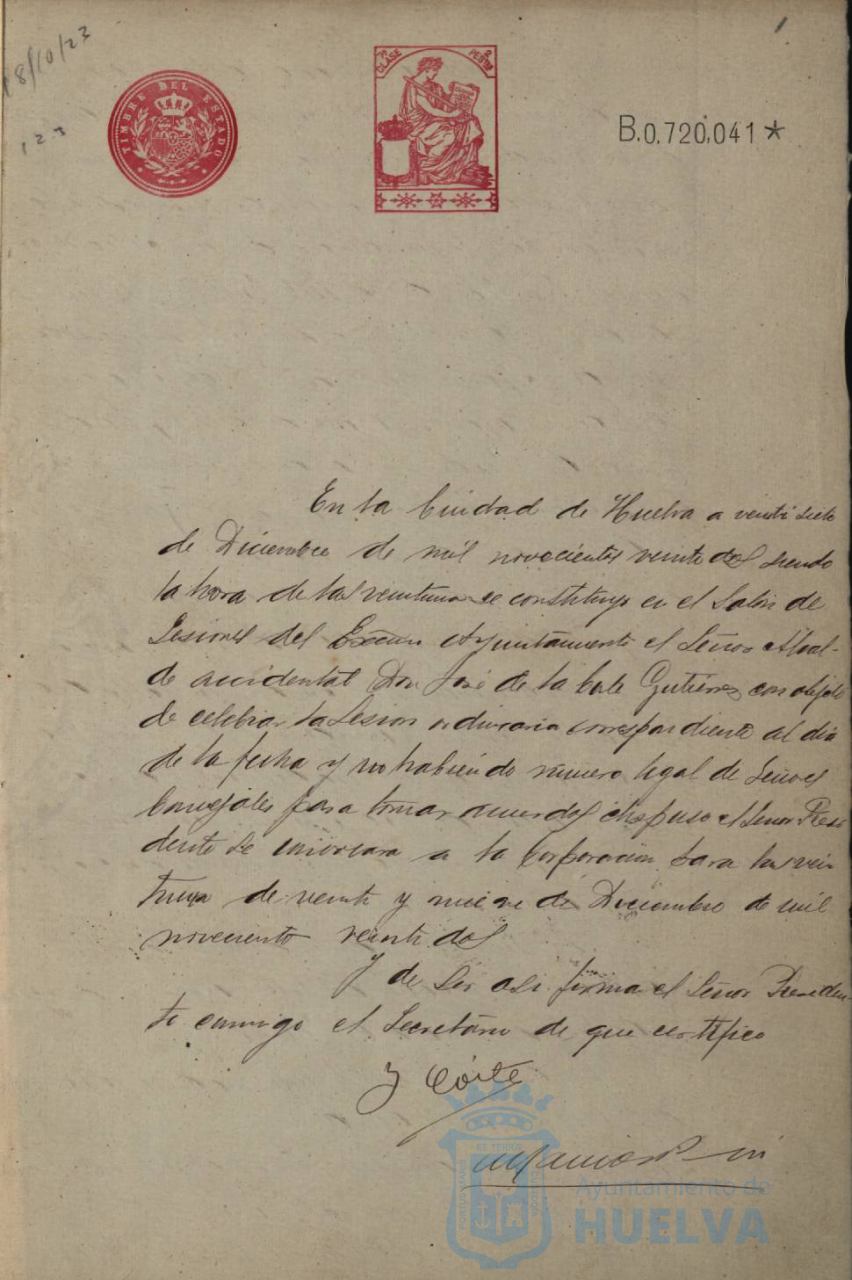 18/10/23
1 2 3
1
TIMBRE DEL ESTADO
7ª CLASE 2 PESETAS
B.0,720,041*
En la Ciudad de Huelva a veinti siete
de Diciembre de mil novecientos veinte dos siendo
la hora de las veintiuna se constituyo en el Salon de
Sesiones del Excmo Ayuntamiento el Señor Alcal-
de accidental Don José de la Corte Gutiérrez con objeto
de celebrar la Sesion ordinaria correspondiente al dia
de la fecha y no habiendo número legal de Señores
Concejales para tomar acuerdos dispuso el Señor Presi
dente se convocara a la Corporacion para las vein
tiuna de veinte y nueve de Diciembre de mil
novecientos veinte dos
Y de ser asi firma el Señor Presiden
te conmigo el Secretario de que certifico
J Córte
Ayuntamiento de
HUELVA